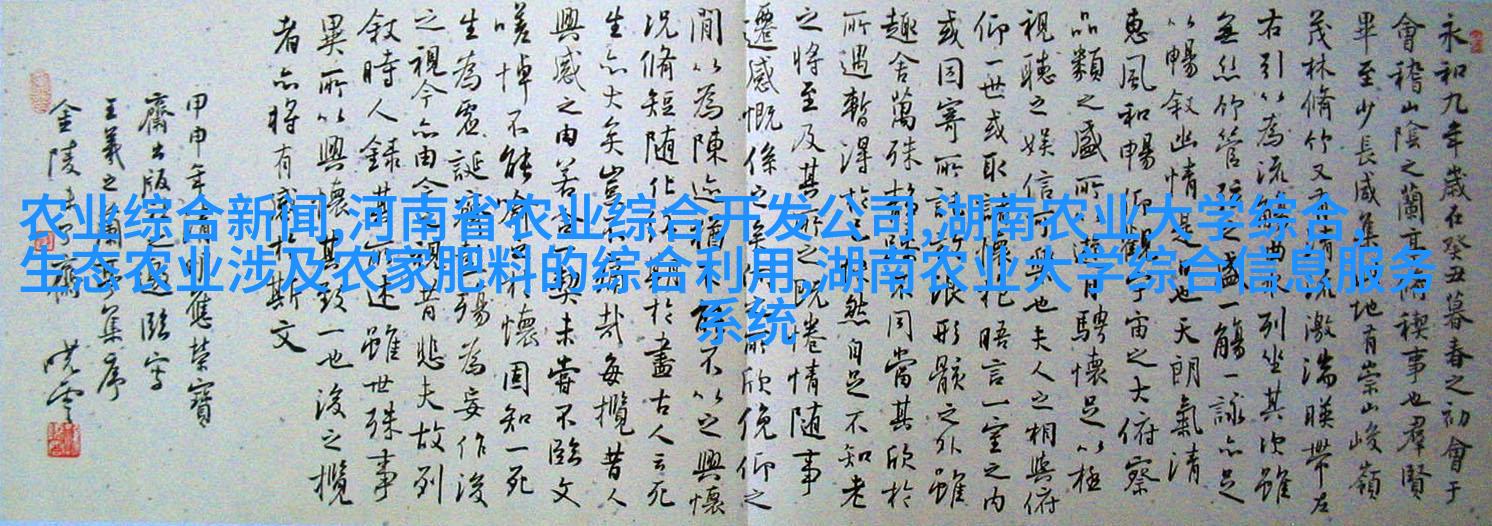 农业综合新闻,河南省农业综合开发公司,湖南农业大学综合,
生态农业涉及农家肥料的综合利用,湖南农业大学综合信息服务
系统
永和九年歲在癸丑暮春之初會于
會稽山陰之蘭亭脩禊事也羣賢
畢至少長咸集此地有崇山峻嶺
茂林脩竹又有清流激湍暎帶左
右引以為流觴曲水列坐其次雖
無絲竹管弦之盛一觴一詠亦足
以暢叙幽情是日也天朗氣清
惠風和暢仰觀宇宙之大俯察
品類之盛所以遊目騁懷足以極
視聽之娛信可樂也夫人之相與俯
仰一世或取諸懷抱晤言一室之内
或因寄所託放浪形骸之外雖
趣舍萬殊靜躁不同當其欣於
所遇暫得於己快然自足不知老
之將至及其所之既倦情随事
遷感慨係之矣向之所欣俛仰之
間以為陳迹猶不能不以之興懷
況脩短随化終期於盡古人云死
生亦大矣豈不痛哉每攬昔人
興感之由若合一契未嘗不臨文
嗟悼不能喻之於懷固知一死
生為虛誕齊彭殤為妄作後
之視今亦由今之視昔悲夫故列
叙時人錄其所述雖世殊事
異所以興懷其致一也後之攬
者亦將有感於斯文
甲申年清明應榮寶
齋出版之邀臨寫
王羲之蘭亭集序
金陵